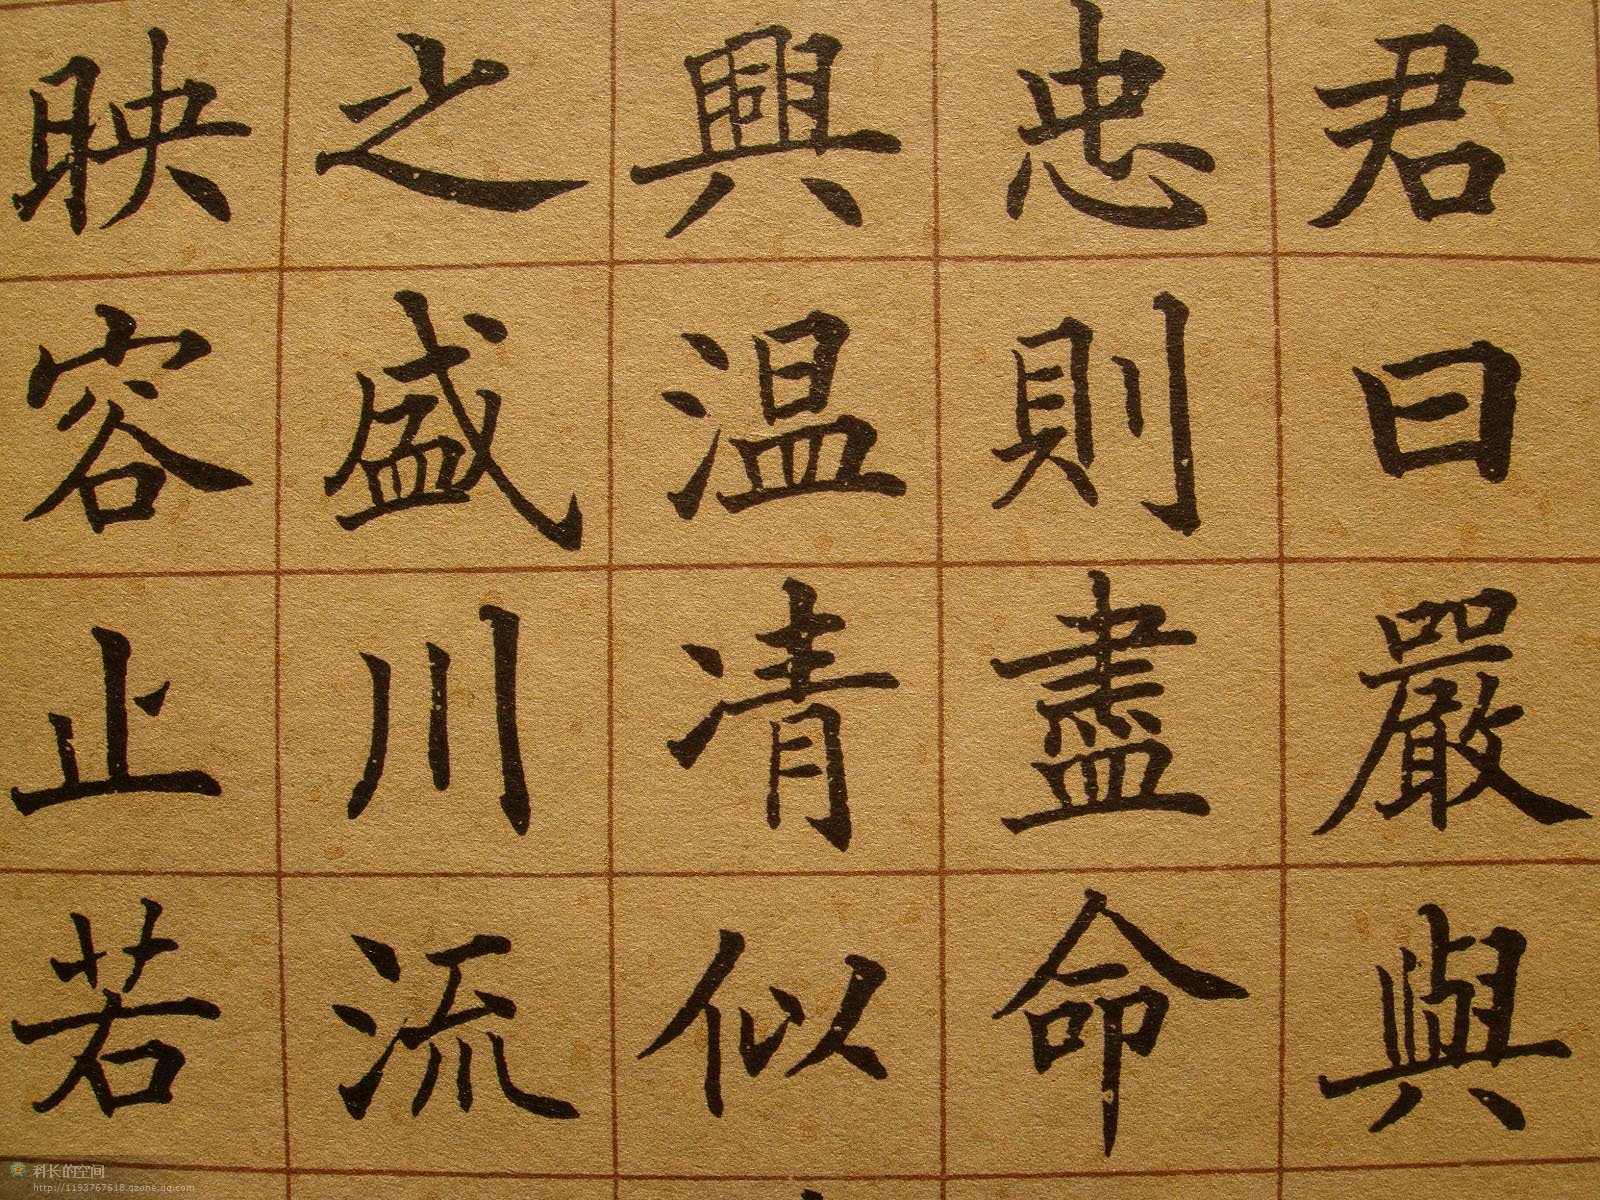 君曰嚴與
忠則盡命
興温凊似
之盛川流
映容止若
科长的空间
http://1193767618.qzone.qq.com